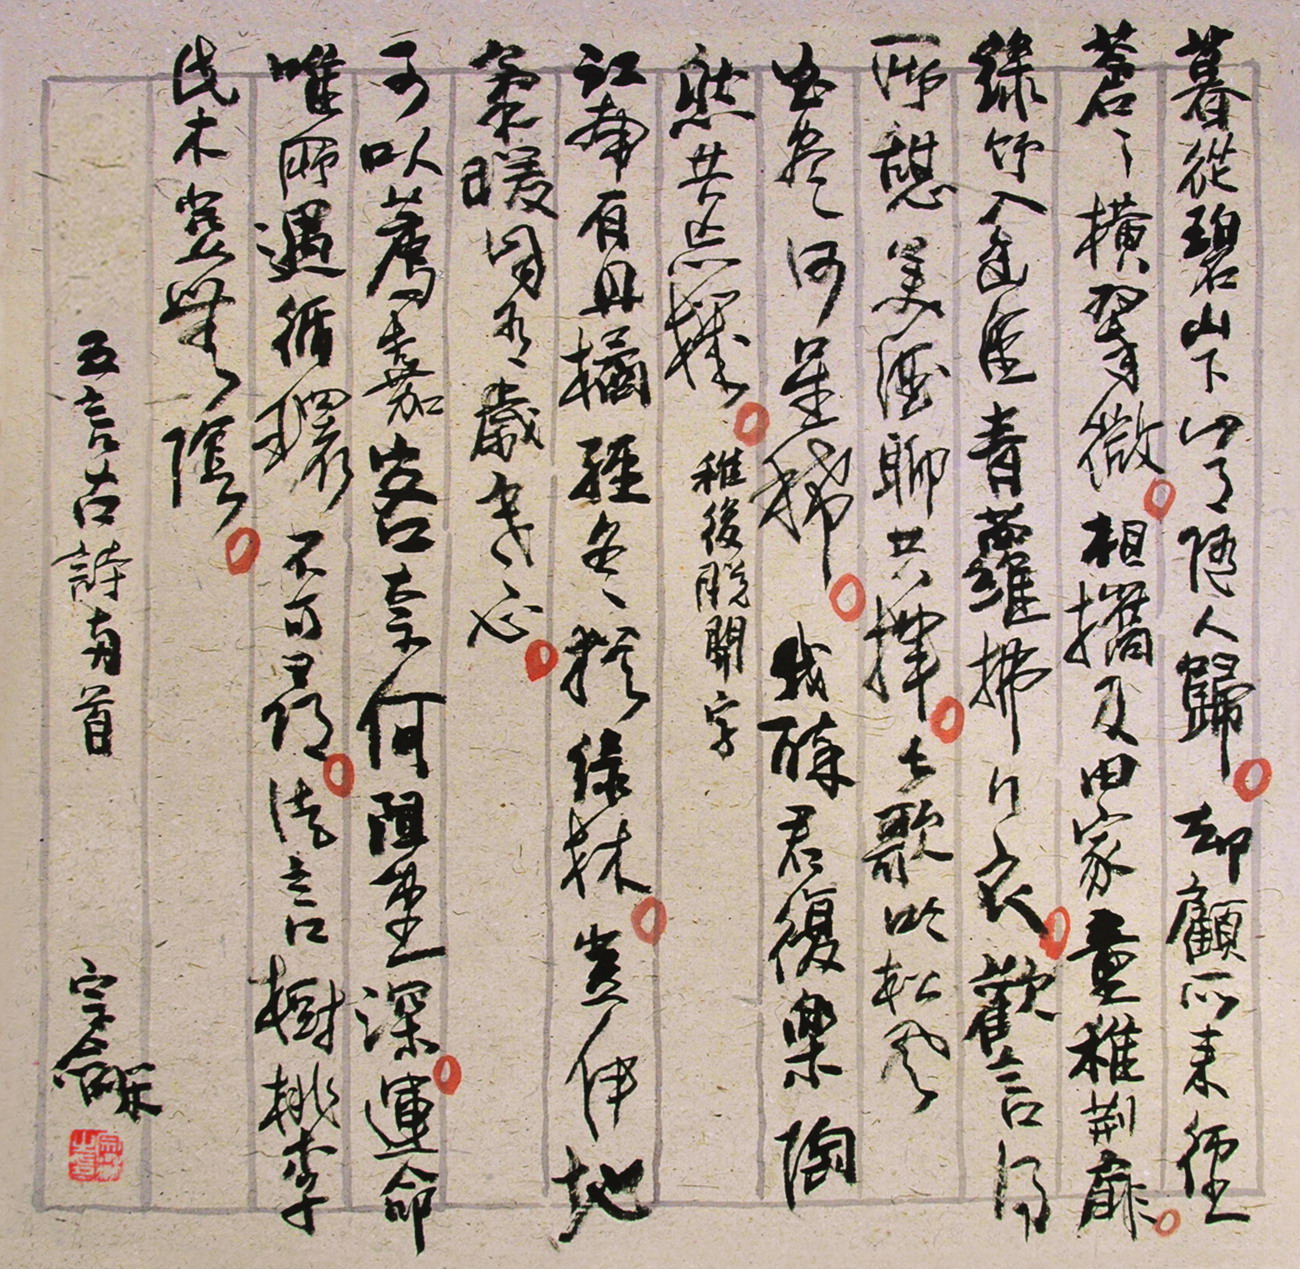 暮從碧山下山月隨人歸却顧所來徑
蒼〻橫翠微相攜及田家童稚荊扉
綠竹入幽徑青蘿拂行衣歡言得
所憩美酒聊共揮長歌吟松風
曲盡河星稀我醉君復樂陶
然共忘機稚後脫開字
江南有丹橘經冬猶綠林豈伊地
氣暖自有歲寒心
可以薦嘉客奈何阻重深運命
唯所遇循環不可尋徒言樹桃李
此木豈無陰
五言古詩兩首